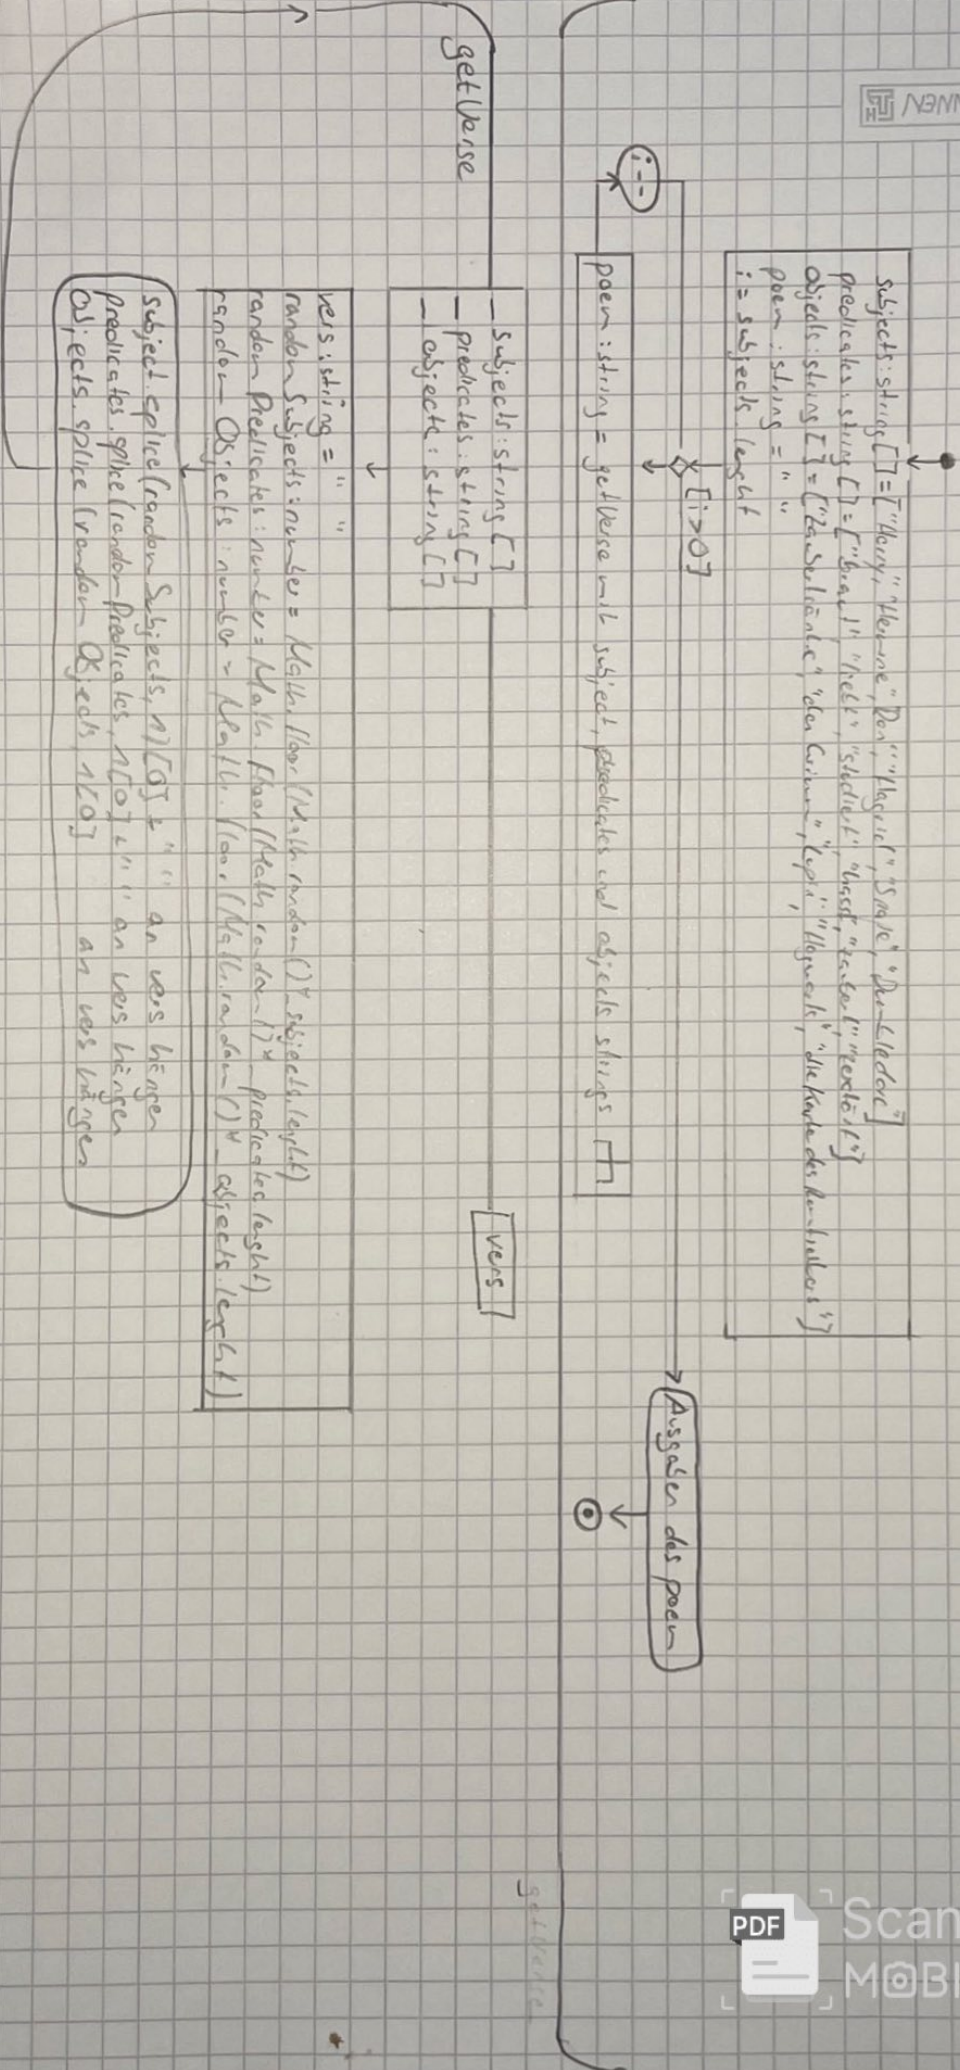 subjects:string[]=["Harry","Hermine","Ron","Hagrid","Snape","Dumbledore"]
predicates:string[]=["braut","liebt","studiert","hasst","zaubert","zerstört"]
objects:string[]=["Zaubertränke","den Grimm","Lupin","Hogwarts","die Karte des Rumtreibers"]
poem:string=" "
i=subjects.lenght
[i>0]
i--
poem:string=getVerse mit subject, predicates und objects strings
Ausgaben des poem
getVerse
_subjects:string[]
_predicates:string[]
_objects:string[]
vers
vers:string=" "
randomSubjects:number=Math.floor(Math.random()*_subjects.lenght)
randomPredicates:number=Math.floor(Math.random()*_predicates.lenght)
randomObjects:number=Math.floor(Math.random()*_objects.lenght)
subject.splice(randomSubjects,1)[0]+" " an vers hängen
predicates.splice(randomPredicates,1[0]+" " an vers hängen
Objects.splice(randomObjects,1[0] an vers hängen
getVerse
PDF
Scan
MOBI